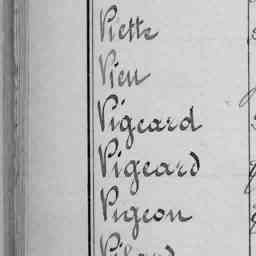 Piette
Pieu
Pigeard
Pigeard
Pigeon